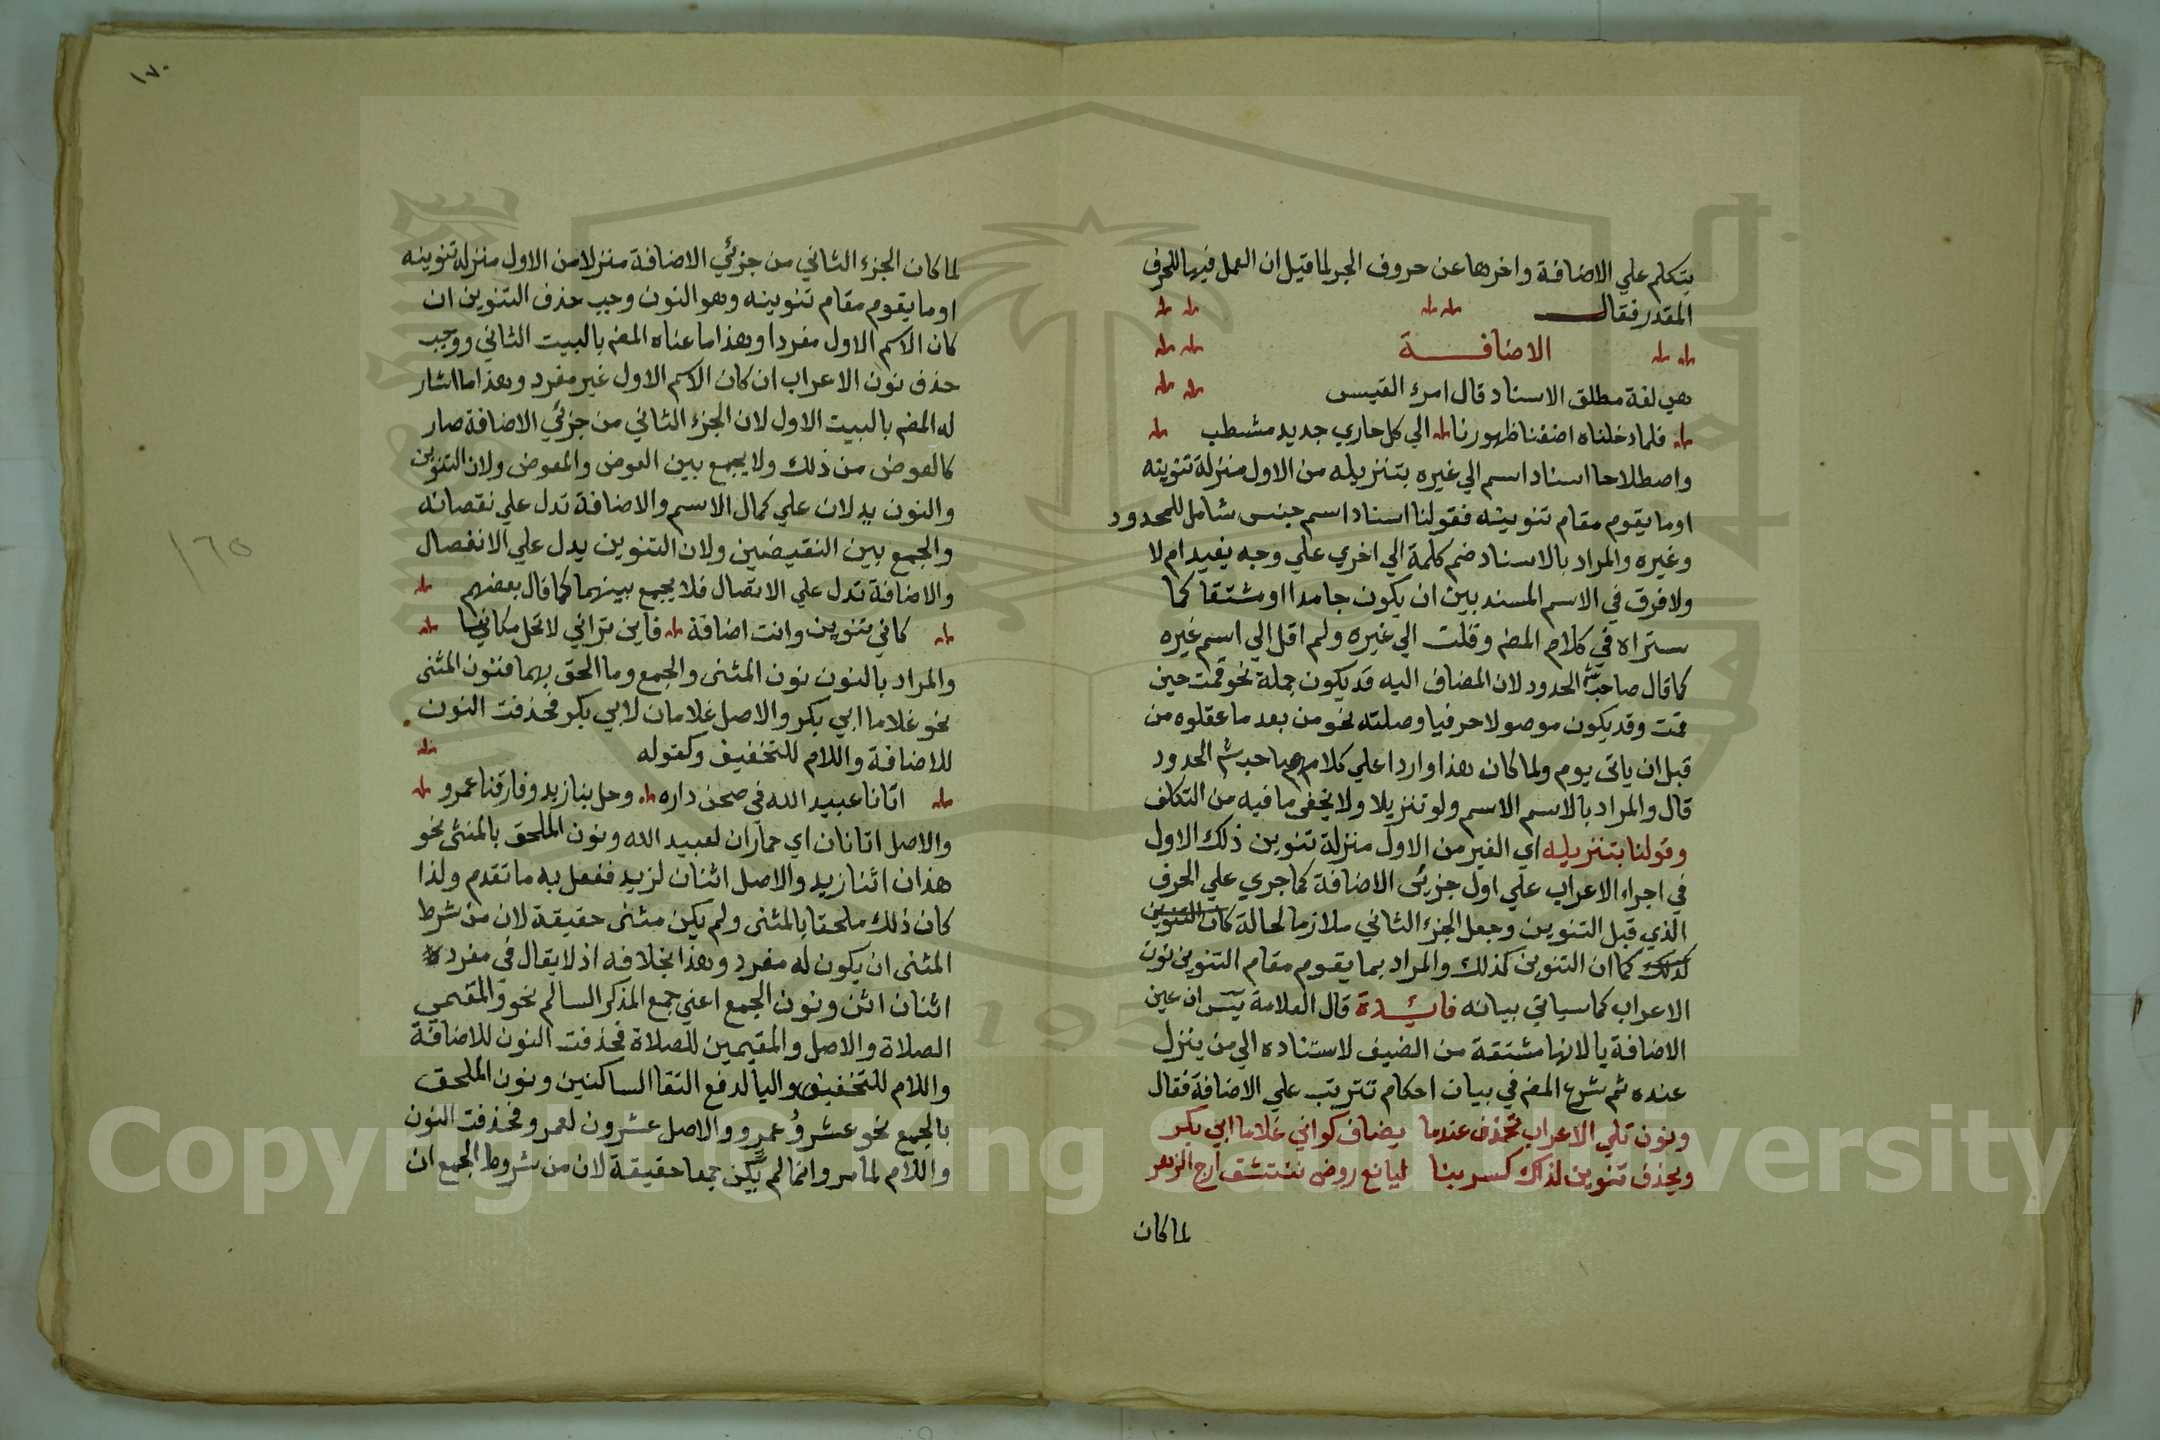 يتكلم علي الاضافة واخرها عن حروف الجر لما قيل ان العمل فيها للحرف
المقدر فقال
الاضافة
هي لغة مطلق الاسناد قال امرء القيس
فلما دخلناه اضفنا ظهورنا الي كل حاري جديد مشطب
واصطلاحا اسناد اسم الي غيره بتنزيله من الاول منزلة تنوينه
او ما يقوم مقام تنوينه فقولنا اسناد اسم جنس شامل للمحدود
وغيره والمراد بالاسناد ضم كلمة الي اخري علي وجه يفيد ام لا
ولا فرق في الاسم المسند بين ان يكون جامدا او مشتقا كما
ستراه في كلام المص وقلت الي غيره ولم اقل الي اسم غيره
كما قال صاحب الحدود لان المضاف اليه قد يكون جملة نحو قمت حين
قمت وقد يكون موصولا حرفيا وصلته نحو من بعد ما عقلوه من
قبل ان ياتي يوم ولما كان هذا واردا علي كلام صاحب الحدود
قال والمراد بالاسم الاسم ولو تنزيلا ولا يخفي ما فيه من التكلف
وقولنا بتنزيله اي الغير من الاول منزلة تنوين ذلك الاول
في اجراء الاعراب علي اول جزئي الاضافة كما جري علي الحرف
الذي قبل التنوين وجعل الجزء الثاني ملازما لحالة كان التنوين
كذلك كما ان التنوين كذلك والمراد بما يقوم مقام التنوين نون
الاعراب كما سياتي بيانه فائدة قال العلامة يس ان عين
الاضافة يا لانها مشتقة من الضيف لاستناده الي من ينزل
عنده ثم شرع المص في بيان احكام تترتب علي الاضافة فقال
ونون تلي الاعراب تحذف عندما يضاف كواني غلاما ابي بكر
ويحذف تنوين لذاك كسر بنا ليانع روض ننتشق ارج الزهر
لما كان
١٧٠
لما كان الجزء الثاني من جزئي الاضافة منزلا من الاول منزلة تنوينه
او ما يقوم مقام تنوينه وهو النون وجب حذف التنوين ان
كان الاسم الاول مفردا وهذا ما عناه المص بالبيت الثاني ووجب
حذف نون الاعراب ان كان الاسم الاول غير مفرد وهذا ما اشار
له المص بالبيت الاول لان الجزء الثاني من جزئي الاضافة صار
كالعوض من ذلك ولا يجمع بين العوض والمعوض ولان التنوين
والنون يدلان علي كمال الاسم والاضافة تدل علي نقصانه
والجمع بين النقيضين ولان التنوين يدل علي الانفصال
والاضافة تدل علي الاتصال فلا يجمع بينهما كما قال بعضهم
كاني تنوين وانت اضافة فاين تراني لا تحل مكانيا
والمراد بالنون نون المثني والجمع وما الحق بهما فنون المثني
نحو غلاما ابي بكر والاصل غلامان لابي بكر فحذفت النون
للاضافة واللام للتخفيف وكقوله
اتانا عبيد الله في صحن داره وحل بنا زيد وفارقنا عمرو
والاصل اتانان اي حماران لعبيد الله ونون الملحق بالمثني نحو
هذان اثنا زيد والاصل اثنان لزيد ففعل به ما تقدم ولذا
كان ذلك ملحقا بالمثني ولم يكن مثني حقيقة لان من شرط
المثني ان يكون له مفرد وهذا بخلافه اذ لا يقال في مفرد
اثنان اثن ونون الجمع اعني جمع المذكر السالم نحو والمقيمي
الصلاة والاصل والمقيمين للصلاة فحذفت النون للاضافة
واللام للتخفيف واليا لدفع التقا الساكنين ونون الملحق
بالجمع نحو عشرو عمرو والاصل عشرون لعمرو فحذفت النون
واللام لما مر وانما لم يكن جمعا حقيقة لان من شروط الجمع ان
١٦٥
Copyright © King Saud University